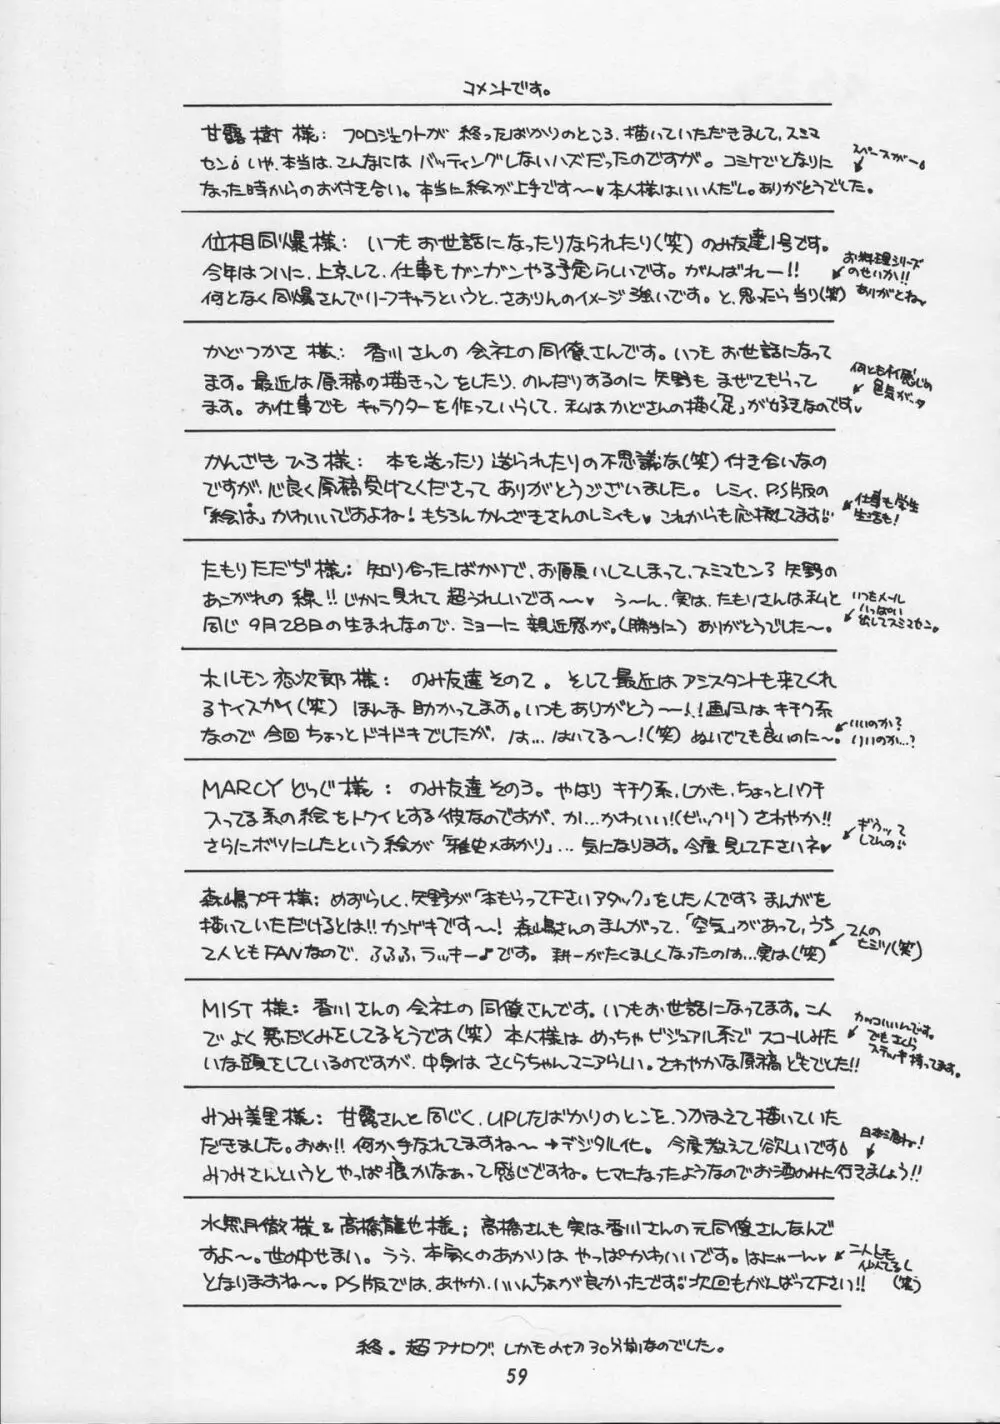 コメントです。
甘露樹様: プロジェクトが終ったばかりのところ、描いていただきまして、スミマ
セン。いや、本当は、こんなにはバッティングしないハズだったのですが。コミケでとなりに
なった時からのお付き合い。本当に絵が上手です〜♥本人様はいい人だし。ありがとうでした。
スペースがー。
位相同爆様: いつもお世話になったりなられたり(笑)のみ友達1号です。
今年はついに、上京して、仕事もガンガンやる予定らしいです。がんばれー!!
何となく同爆さんでリーフキャラというと、さおりんのイメージ強いです。と、思ったら当り(笑)
お料理シリーズ
のせいか!!
ありがとね♥
かどつかさ様: 香川さんの会社の同僚さんです。いつもお世話になって
ます。最近は原稿の描きっこをしたり、のんだりするのに矢野もまぜてもらって
ます。お仕事でもキャラクターを作っていらして、私はかどさんの描く「足」が好きなのです♥
何とも
色気が
かんざきひろ様: 本を送ったり送られたりの不思議な(笑)付き合いなの
ですが、心良く原稿受けてくださってありがとうございました。レミィ、P.S版の
「絵は」かわいいですよね!もちろんかんざきさんのレミィも♥これからも応援してます!!
仕事も学生
生活も!
たもりただぢ様: 知り合ったばかりで、お願いしてしまって、スミマセンろ 矢野の
あこがれの線!!じかに見れて超うれしいです〜〜♥う〜ん、実は、たもりさんは私と
同じ9月28日の生まれなので、ミョーに親近感が。(勝手に)ありがとうでした〜。
いつもメール
いっぱい
出してスミマセン。
ホルモン恋次郎様: のみ友達その2。そして最近はアシスタントも来てくれ
るナイスガイ(笑)ほんま助かってます。いつもありがとう〜!!画風はキチク系
なので今回ちょっとドキドキでしたが、は…はいてる〜!(笑)ぬいでても良いのに〜。
いいのか?
いいのか…?
MARCYどっぐ様: のみ友達その3。やはりキチク系、しかも、ちょっとハクチ
入ってる系の絵をトクイとする彼なのですが、か…かわいい!(ビックリ)さわやか!!
さらにボツにしたという絵が「雅史×あかり」…気になります。今度見して下さいネ♥
ぎうって
してんの!!
森嶋プチ様: めずらしく、矢野が「本もらって下さいアタック」をした人ですろ まんがを
描いていただけるとは!!カンゲキです〜!森嶋さんのまんがって、「空気」があって、うち
2人ともFANなので、ふふふラッキー♪です。耕一がたくましくなったのは…実は(笑)
2人の
ヒミツ(笑)
MIST様: 香川さんの会社の同僚さんです。いつもお世話になってます。二人
でよく悪だくみをしてるそうです(笑)本人様はめっちゃビジュアル系でスコールみた
いな頭をしているのですが、中身はさくらちゃんマニアらしい。さわやかな原稿どもでした!!
カッコいいんです。
でもさくら
ステッキ持ってます。
みつみ美里様: 甘露さんと同じく、UPしたばかりのとこを、つかまえて描いていた
だきました。おぉ!!何か手なれてますね〜→デジタル化。今度教えて欲しいです。
みつみさんというとやっぱ痕かなぁって感じですね。ヒマになったようなのでお酒のみに行きましょう!!
日本酒ね!
水無月徹様&高橋龍也様; 高橋さんも実は香川さんの元同僚さんなんで
すよ〜。世の中せまい。うぅ、本家のあかりはやっぱかわいいです。はにゃーん♥
となりますね〜。PS版では、あやか、いいんちょが良かったです。次回もがんばって下さい!!
二人とも
似てるし
(笑)
終。超アナログ、しかも〆切30分前なのでした。
59